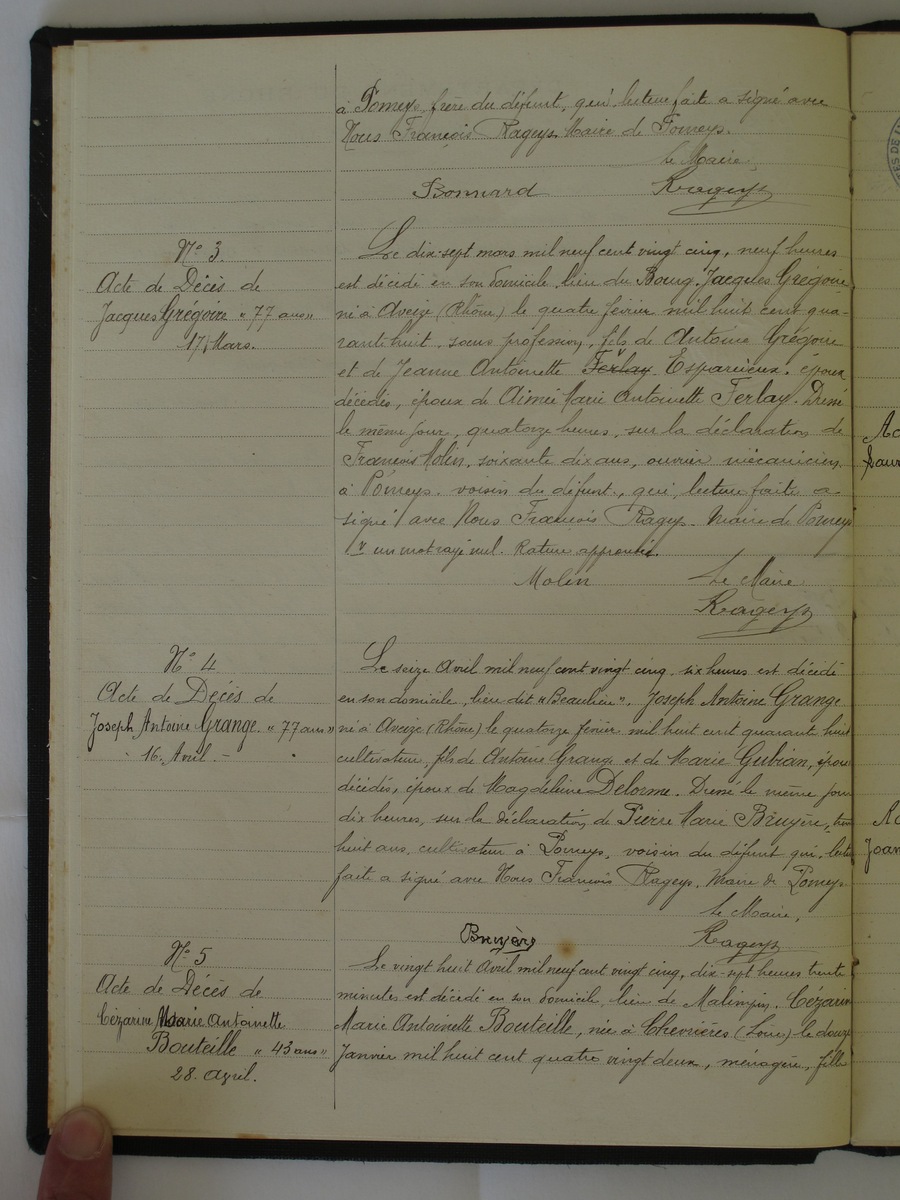 à Pomeys, frère du défunt, qui, lecture faite a signé avec
Nous François Rageys. Maire de Pomeys.
Le Maire,
Bonnard Rageys
N° 3.
Acte de Décès de
Jacques Grégoire "77 ans"
17 Mars.
Le dix-sept mars mil neuf cent vingt cinq, neuf heures
est décédé en son domicile, lieu du Bourg. Jacques Grégoire
né à Aveize (Rhône) le quatre février mil huit cent qua-
rante huit, sans profession, fils de Antoine Grégoire
et de Jeanne Antoinette Ferlay Esparcieux. époux
décédés, époux de Aimée Marie Antoinette Ferlay. Dressé
le même jour, quatorze heures, sur la déclaration de
François Molin, soixante dix ans, ouvrier mécanicien
à Pomeys. voisin du défunt, qui, lecture faite a
signé avec Nous François Rageys. Maire de Pomeys
un mot rayé nul. Rature approuvée.
Molin Le Maire
Rageys
N° 4
Acte de Décès de
Joseph Antoine Grange. "77 ans"
16. Avril.-
Le seize Avril mil neuf cent vingt cinq, six heures est décédé
en son domicile, lieu dit "Beaulieu". Joseph Antoine Grange
né à Aveize (Rhône) le quatorze février mil huit cent quarante huit
cultivateur, fils de Antoine Grange et de Marie Gubian, époux
décédés, époux de Magdeleine Delorme. Dressé le même jour
dix heures, sur la déclaration de Pierre Marie Bruyère,
huit ans, cultivateur à Pomeys, voisin du défunt qui, lecture
faite a signé avec Nous François Rageys. Maire de Pomeys
Le Maire,
Bruyère Rageys
N° 5
Acte de Décès de
Cézarine Marie Antoinette
Bouteille "43 ans"
28. Avril.
Le vingt huit Avril mil neuf cent vingt cinq, dix-sept heures trente
minutes est décédé en son domicile, lieu de Malimpin. Cézarine
Marie Antoinette Bouteille, née à Chevrières (Loire) le douze
Janvier mil huit cent quatre vingt deux, ménagère, fille